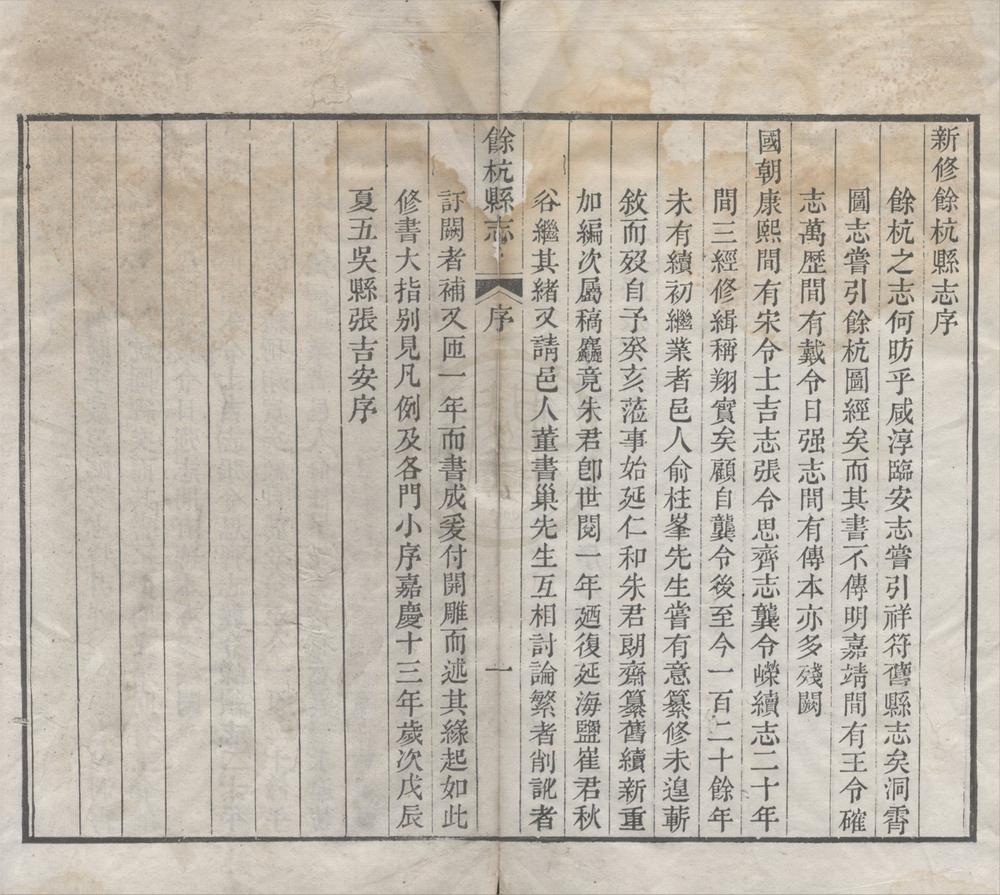 新修餘杭縣志序
餘杭之志何昉乎咸淳臨安志嘗引祥符舊縣志矣洞霄
圖志嘗引餘杭圖經矣而其書不傳明嘉靖間有王令確
志萬歷間有戴令日强志間有傳本亦多殘闕
國朝康熙間有宋令士吉志張令思齊志龔令嶸續志二十年
間三經修緝稱翔實矣顧自龔令後至今一百二十餘年
未有續初繼業者邑人俞柱峯先生嘗有意纂修未遑蕲
敘而歿自予癸亥蒞事始延仁和朱君朗齋纂舊續新重
加編次屬稿麤竟朱君卽世閱一年廼復延海鹽崔君秋
谷繼其緒又請邑人董書巢先生互相討論繁者削訛者
餘杭縣志 序 一
訂闕者補又匝一年而書成爰付開雕而述其緣起如此
修書大指别見凡例及各門小序嘉慶十三年歲次戊辰
夏五吳縣張吉安序